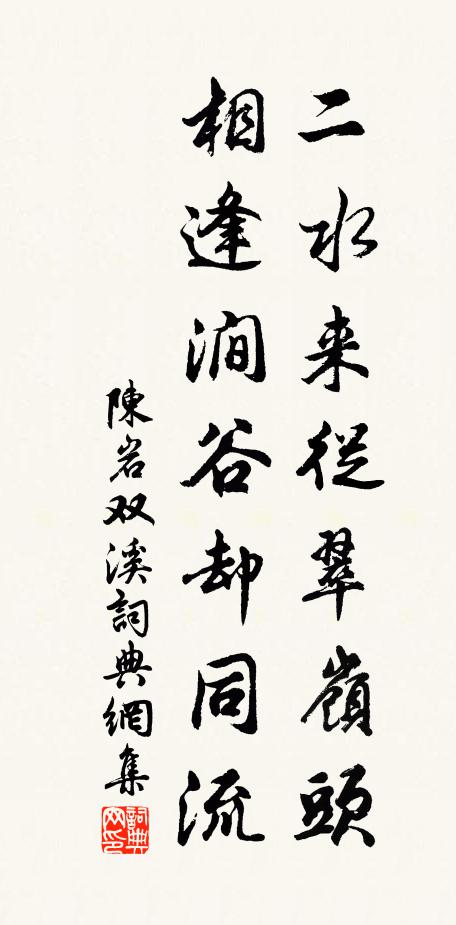 二水来從翠嶺頭
相逢澗谷却同流
陳岩双溪詞典網集
詞典
网印